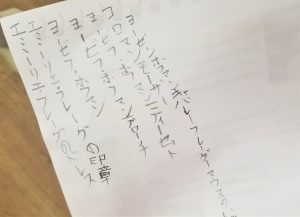 ヨーゼフホフマンキャバレーフレーダーマウスの
コロマンモーザーティーセット
ヨーゼフホフマンブローチ
ヨーゼフ・ホフマン
エミーリエ・フレーゲの印章
エミーリエフレーゲのドレス